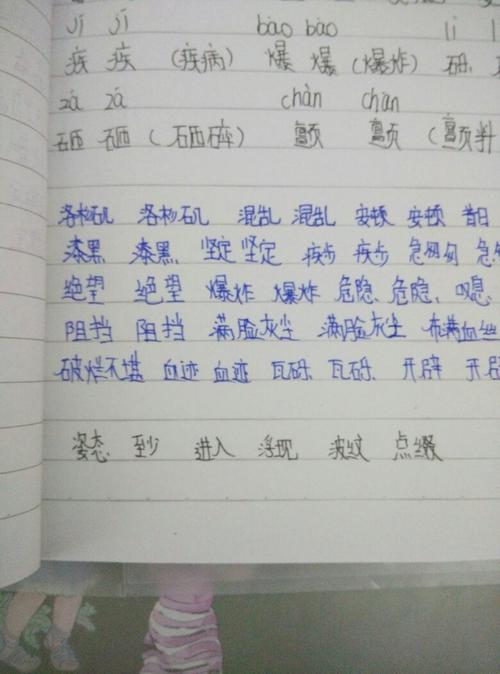 jí jí bào bào lì
疾 疾 (疾病) 爆 爆 (爆炸) 砾
zá zá chàn chàn
砸 砸 (砸碎) 颤 颤 (颤抖
洛杉矶 洛杉矶 混乱 混乱 安顿 安顿 昔日
漆黑 漆黑 坚定 坚定 疾步 疾步 急匆匆 急
绝望 绝望 爆炸 爆炸 危隐 危隐 叹息
阻挡 阻挡 满脸灰尘 满脸灰尘 布满血丝
破烂不堪 血迹 血迹 瓦砾 瓦砾 开辟 开辟
姿态 至少 进入 浮现 波纹 点缀